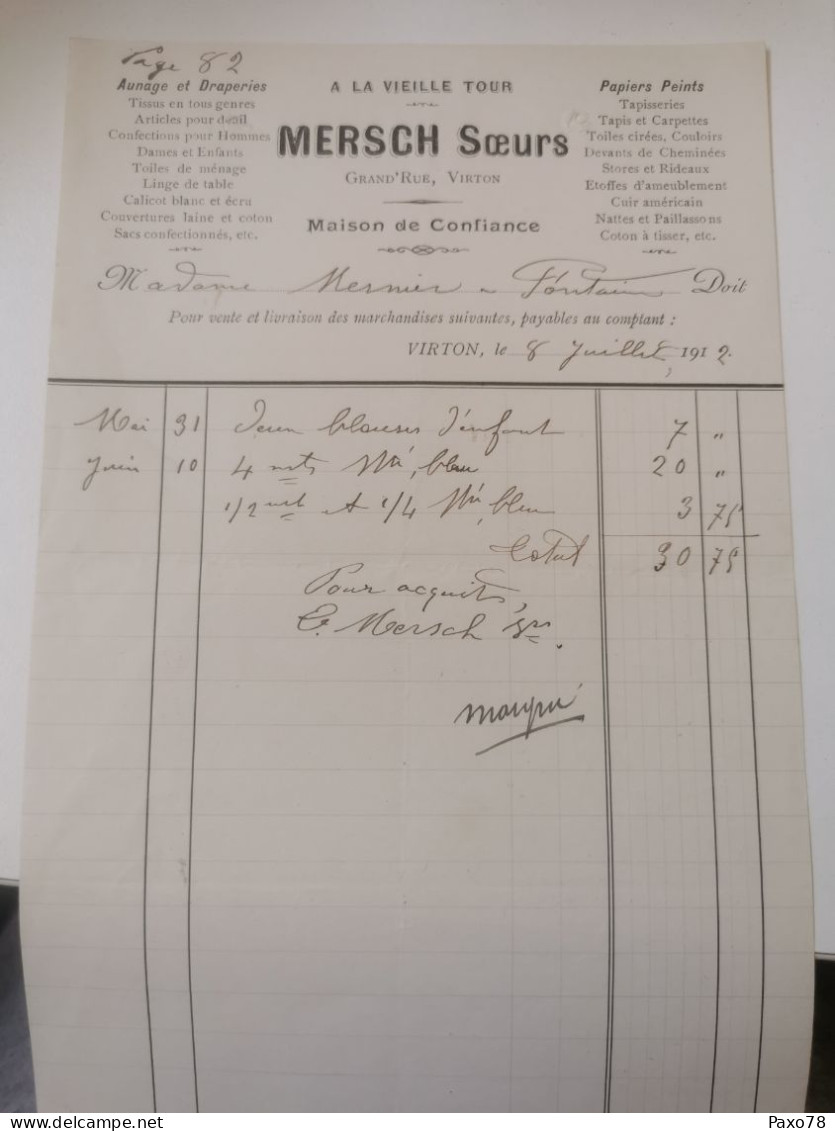 Page 82
Aunage et Draperies
Tissus en tous genres
Articles pour deuil
Confections pour Hommes
Dames et Enfants
Toiles de ménage
Linge de table
Calicot blanc et écru
Couvertures laine et coton
Sacs confectionnés, etc.
A LA VIEILLE TOUR
MERSCH Sœurs
GRAND'RUE, VIRTON
Maison de Confiance
Papiers Peints
Tapisseries
Tapis et Carpettes
Toiles cirées, Couloirs
Devants de Cheminées
Stores et Rideaux
Etoffes d'ameublement
Cuir américain
Nattes et Paillassons
Coton à tisser, etc.
Madame Mernier à Doit
Pour vente et livraison des marchandises suivantes, payables au comptant :
VIRTON, le 8 Juillet, 1912.
Mai 31 Deux blouses d'enfant 7 "
Juin 10 4 bleu 20 "
1/2 et 1/4 bleu 3 75
Total 30 75
Pour acquits,
E. Mersch Srs.
delcampe.net
Paxo78